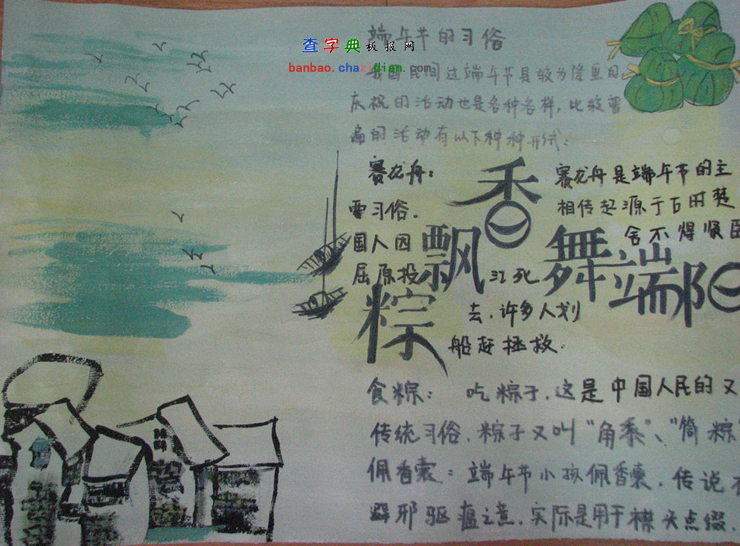 查字典板报网
banbao.chazidian.com
端午节的习俗
我国民间过端午节是较为隆重的
庆祝的活动也是各种各样,比较普
遍的活动有以下种种形式:
赛龙舟: 赛龙舟是端午节的主
要习俗. 相传起源于古时楚
国人因 舍不得贤臣
屈原投 江死
去,许多人划
船赶拯救.
粽飘香舞端阳
食粽: 吃粽子,这是中国人民的又
传统习俗.粽子又叫“角黍”、“筒粽”
佩香囊:端午节小孩佩香囊,传说
避邪驱瘟之意,实际是用于襟头点缀.